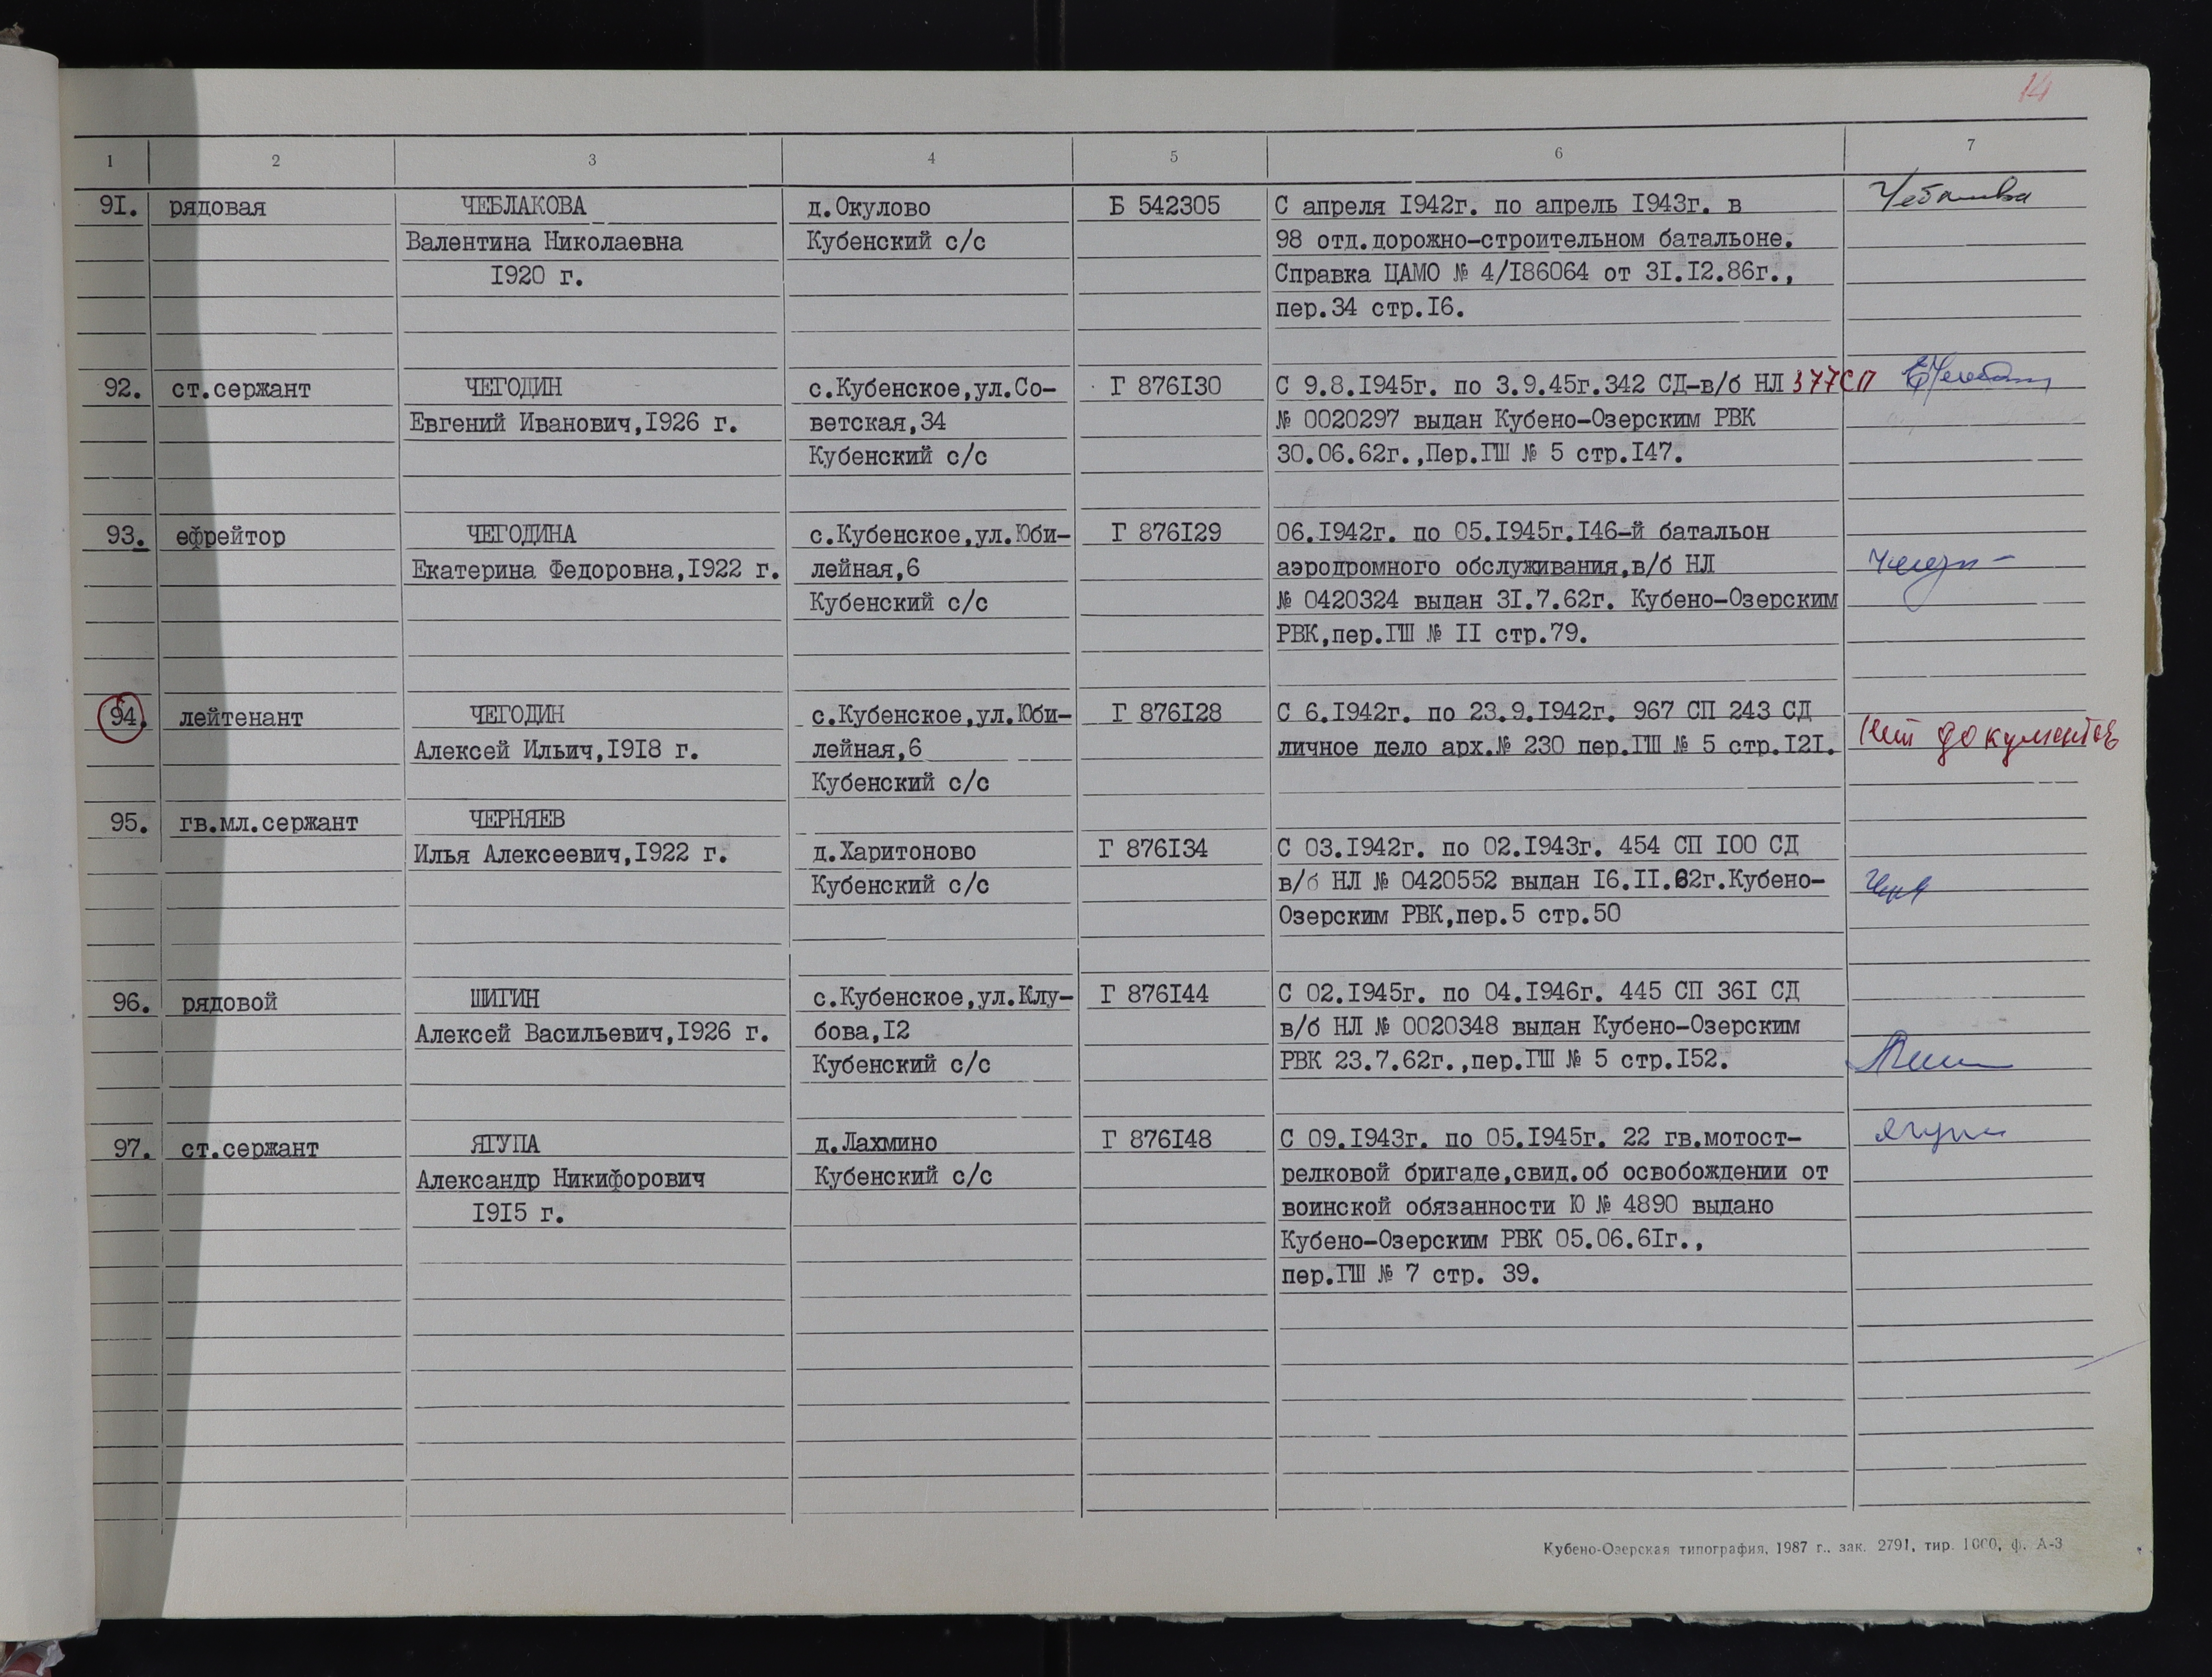 14
1 2 3 4 5 6 7
9I. рядовая ЧЕБЛАКОВА д.Окулово Б 542305 С апреля I942г. по апрель I943г. в
Валентина Николаевна Кубенский с/с 98 отд.дорожно-строительном батальоне.
I920 г. Справка ЦАМО № 4/I86064 от 3I.I2.86г.,
пер.34 стр.I6.
92. ст.сержант ЧЕГОДИН с.Кубенское,ул.Со- Г 876I30 С 9.8.I945г. по 3.9.45г.342 СД-в/б НЛ 377СП
Евгений Иванович,I926 г. ветская,34 № 0020297 выдан Кубено-Озерским РВК
Кубенский с/с 30.06.62г.,Пер.ГШ № 5 стр.I47.
93. ефрейтор ЧЕГОДИНА с.Кубенское,ул.Юби- Г 876I29 06.I942г. по 05.I945г.I46-й батальон
Екатерина Федоровна,I922 г. лейная,6 аэродромного обслуживания,в/б НЛ
Кубенский с/с № 0420324 выдан 3I.7.62г. Кубено-Озерским
РВК,пер.ГШ № II стр.79.
94. лейтенант ЧЕГОДИН с.Кубенское,ул.Юби- Г 876I28 С 6.I942г. по 23.9.I942г. 967 СП 243 СД
Алексей Ильич,I9I8 г. лейная,6 личное дело арх.№ 230 пер.ГШ № 5 стр.I2I. Нет документов
Кубенский с/с
95. гв.мл.сержант ЧЕРНЯЕВ
Илья Алексеевич,I922 г. д.Харитоново Г 876I34 С 03.I942г. по 02.I943г. 454 СП I00 СД
Кубенский с/с в/б НЛ № 0420552 выдан I6.II.62г.Кубено-
Озерским РВК,пер.5 стр.50
96. рядовой ШИГИН с.Кубенское,ул.Клу- Г 876I44 С 02.I945г. по 04.I946г. 445 СП 36I СД
Алексей Васильевич,I926 г. бова,I2 в/б НЛ № 0020348 выдан Кубено-Озерским
Кубенский с/с РВК 23.7.62г.,пер.ГШ № 5 стр.I52.
97. ст.сержант ЯГУПА д.Лахмино Г 876I48 С 09.I943г. по 05.I945г. 22 гв.мотост-
Александр Никифорович Кубенский с/с релковой бригаде,свид.об освобождении от
I9I5 г. воинской обязанности Ю № 4890 выдано
Кубено-Озерским РВК 05.06.6Iг.,
пер.ГШ № 7 стр. 39.
Кубено-Озерская типография, 1987 г., зак. 2791, тир. 1000, ф. А-3